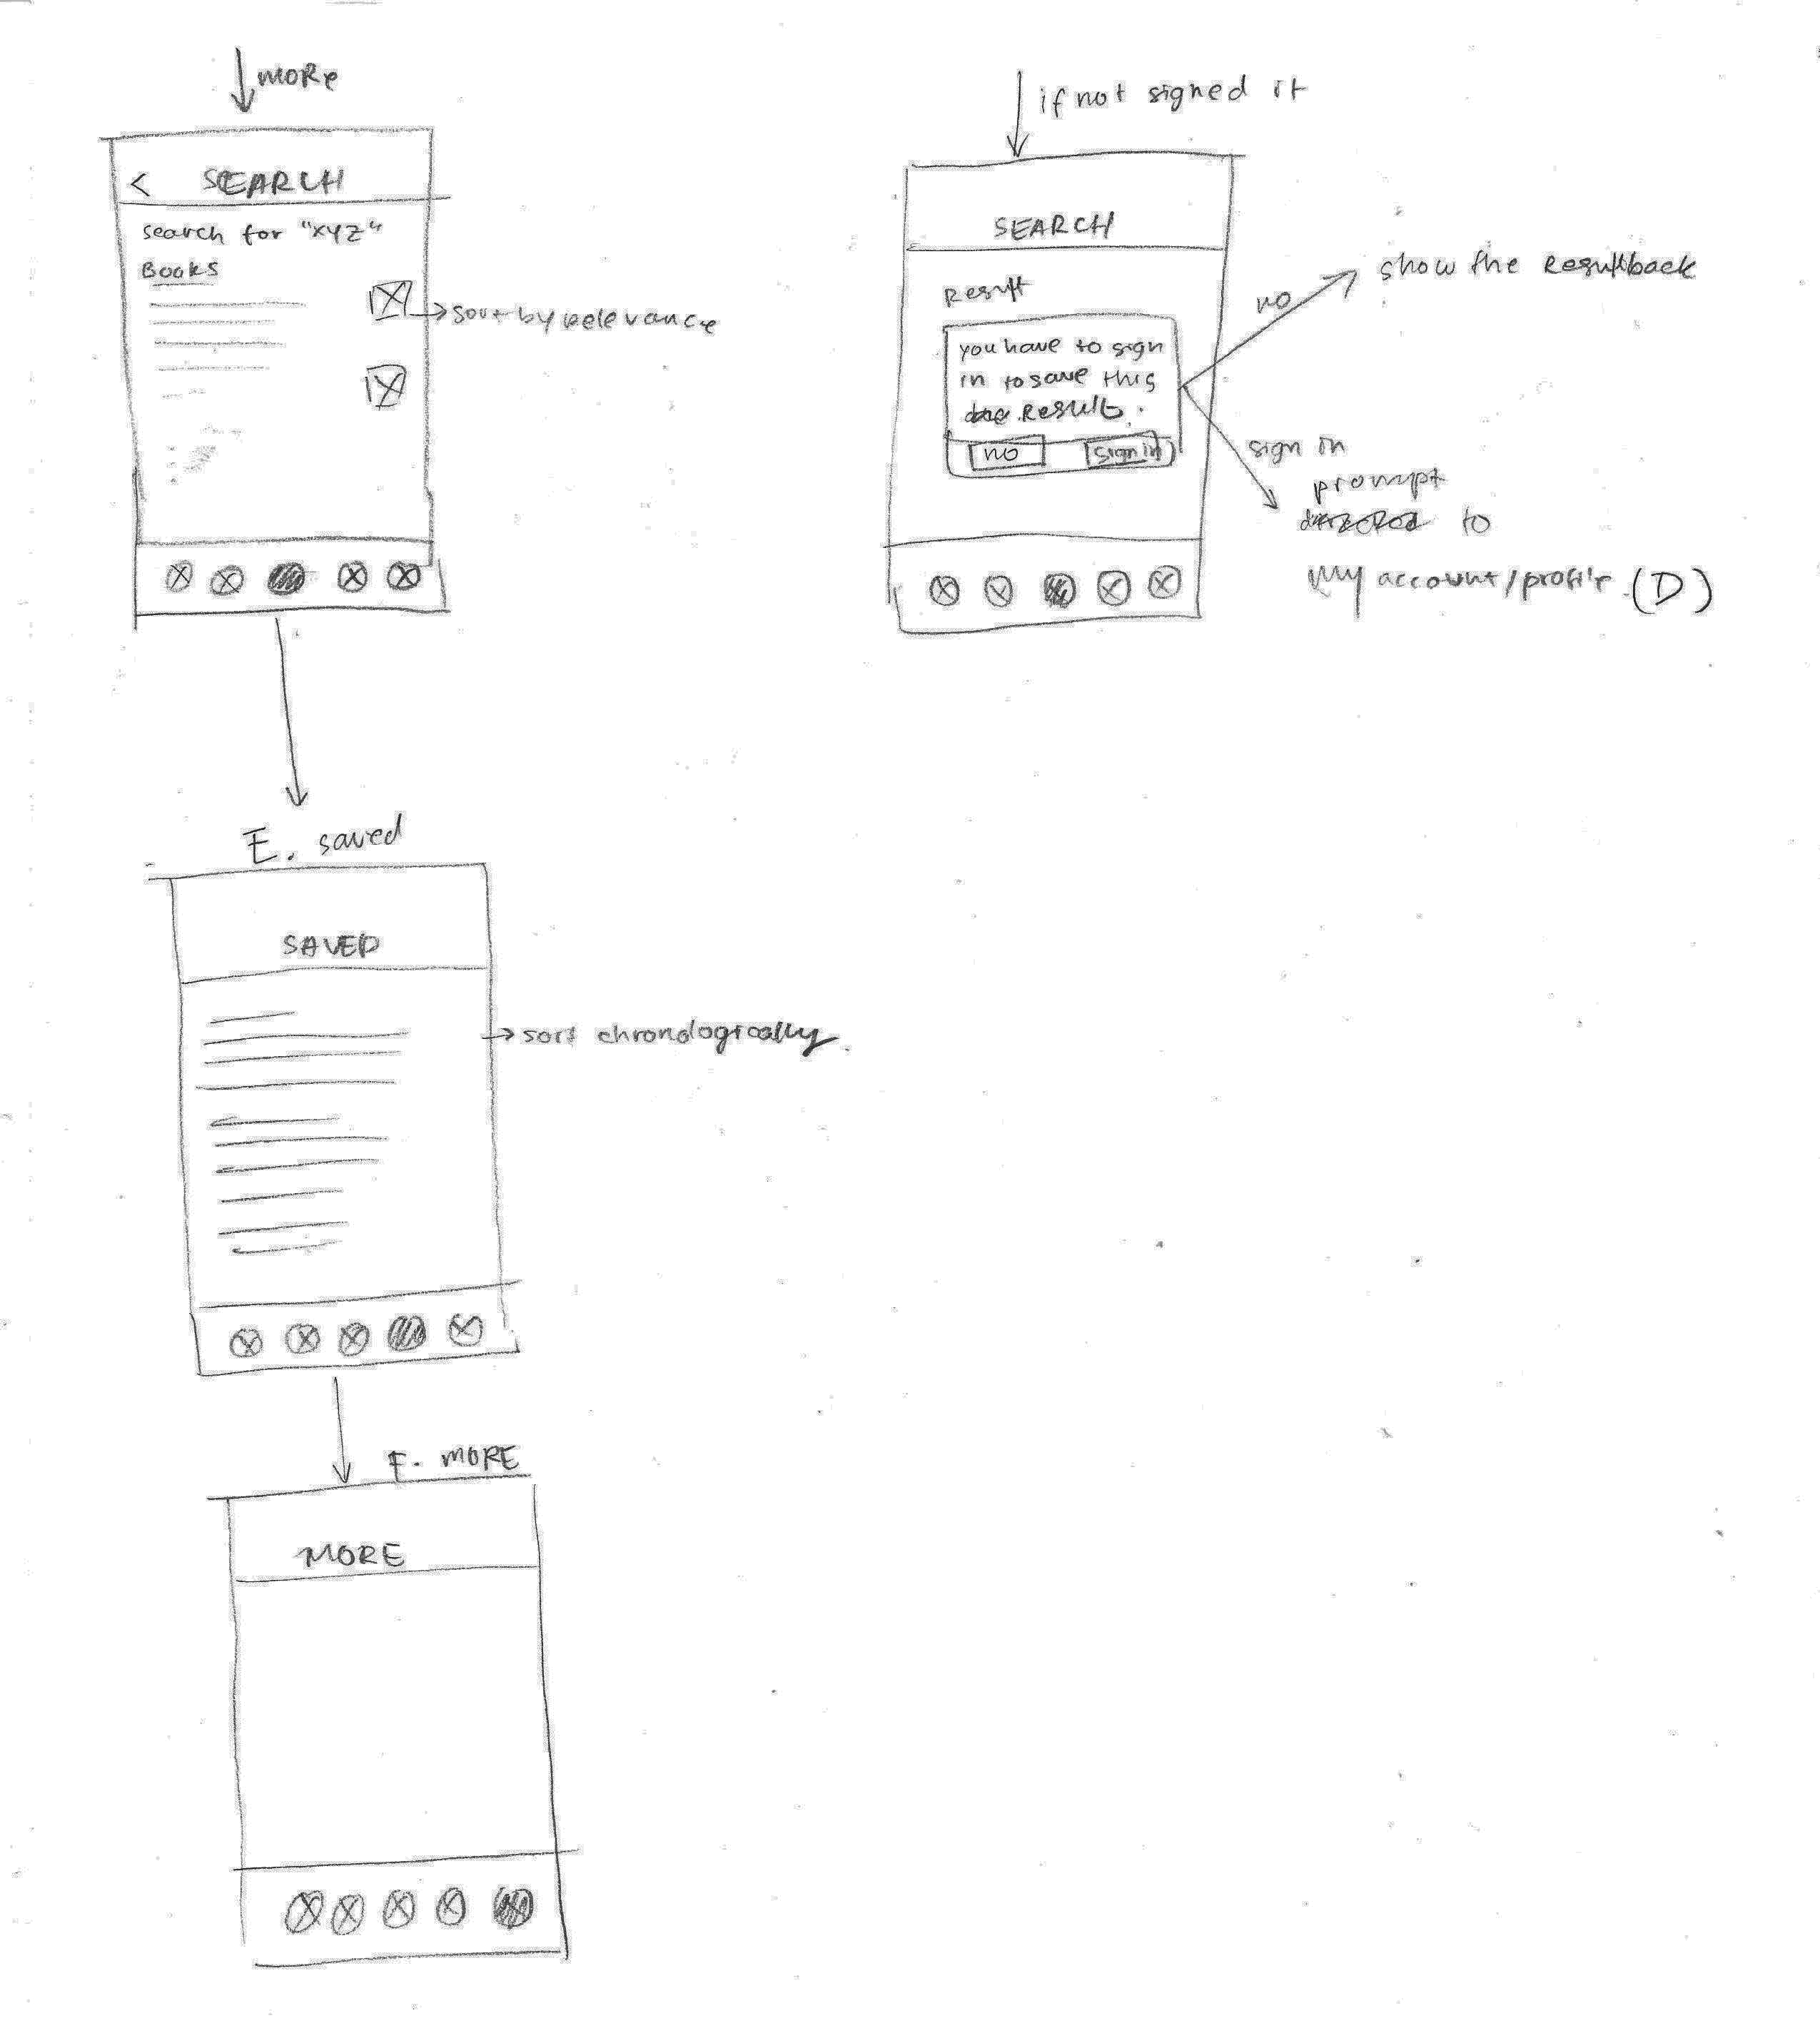 MORE
< SEARCH
search for "XYZ"
BOOKS
sort by relevance
E. saved
SAVED
sort chronologically
F. MORE
MORE
if not signed it
SEARCH
Result
you have to sign
in to save this
Result.
no
sign in
no
show the Result back
sign in
prompt
to
My account/profile (D)